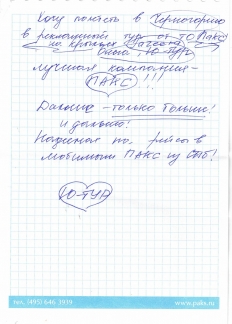 Хочу поехать в Черногорию
в рекламный тур от ТО ПАКС
на крыльях
Ю-ТУР
лучшая компания -
ПАКС!!!
Дальше - только больше!
и дольше!
Надеемся на рейсов
любимый ПАКС из СПб!
Ю-ТУР
тел. (495) 646 3939
www.paks.ru